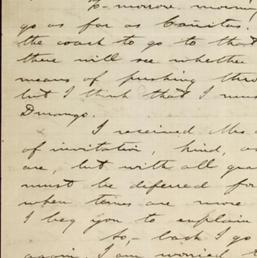 To-morrow morning
go as far as Canitas.
the coach to go to that
there will see whether
means of pushing thro
but I think that I mus
Durango.
I received the
of invitation, kind, as
are, but with all gra
must be deferred for
when times are more
I beg you to explain
So, back I go
again. I am worried t